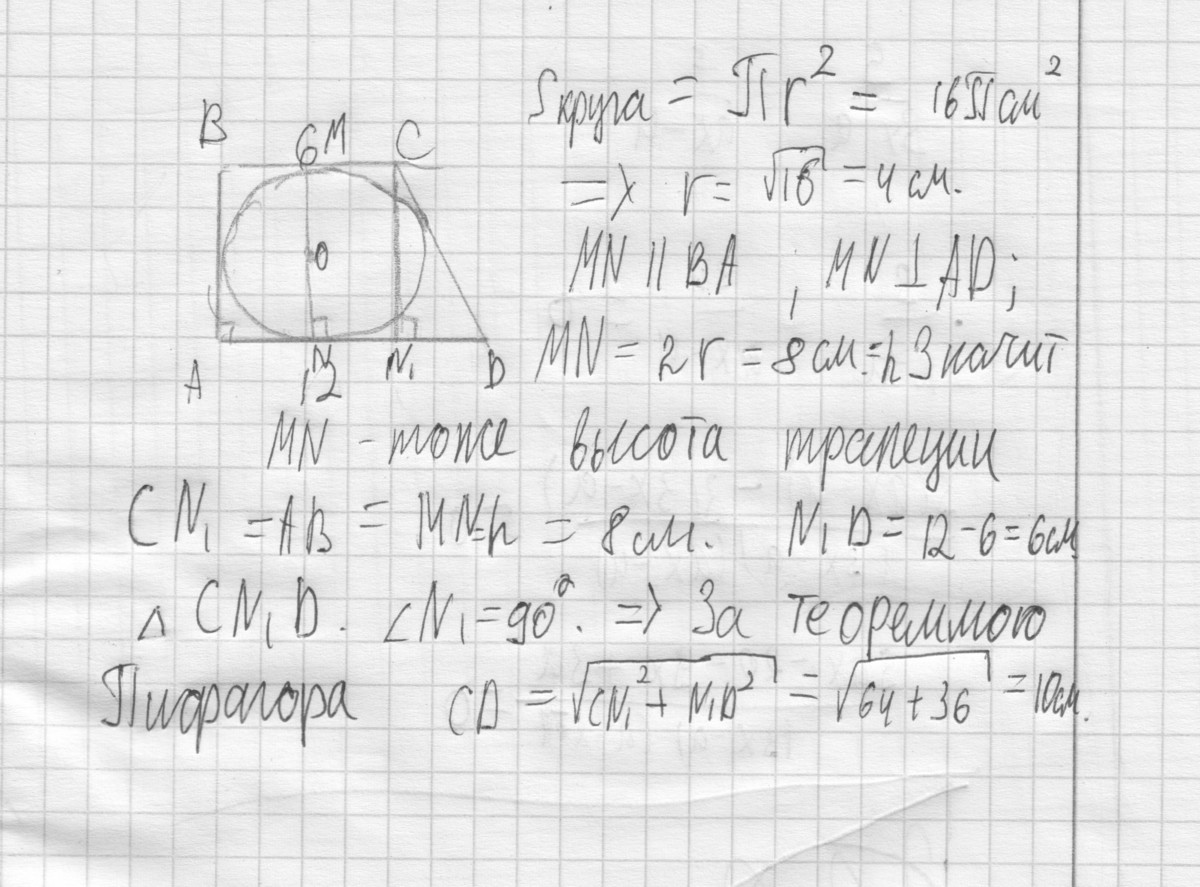 B 6 M C
O
A N N₁ D
12
Sкруга = πr² = 16πсм²
=> r = √16 = 4 см.
MN || BA , MN ⊥ AD;
MN = 2r = 8 см. = h Значит
MN - тоже высота трапеции
CN₁ = AB = MN = h = 8 см. N₁D = 12 - 6 = 6 см
△ CN₁D. ∠N₁ = 90°. => За теореммою
Пифрагора CD = √CN₁² + N₁D² = √64 + 36 = 10 см.